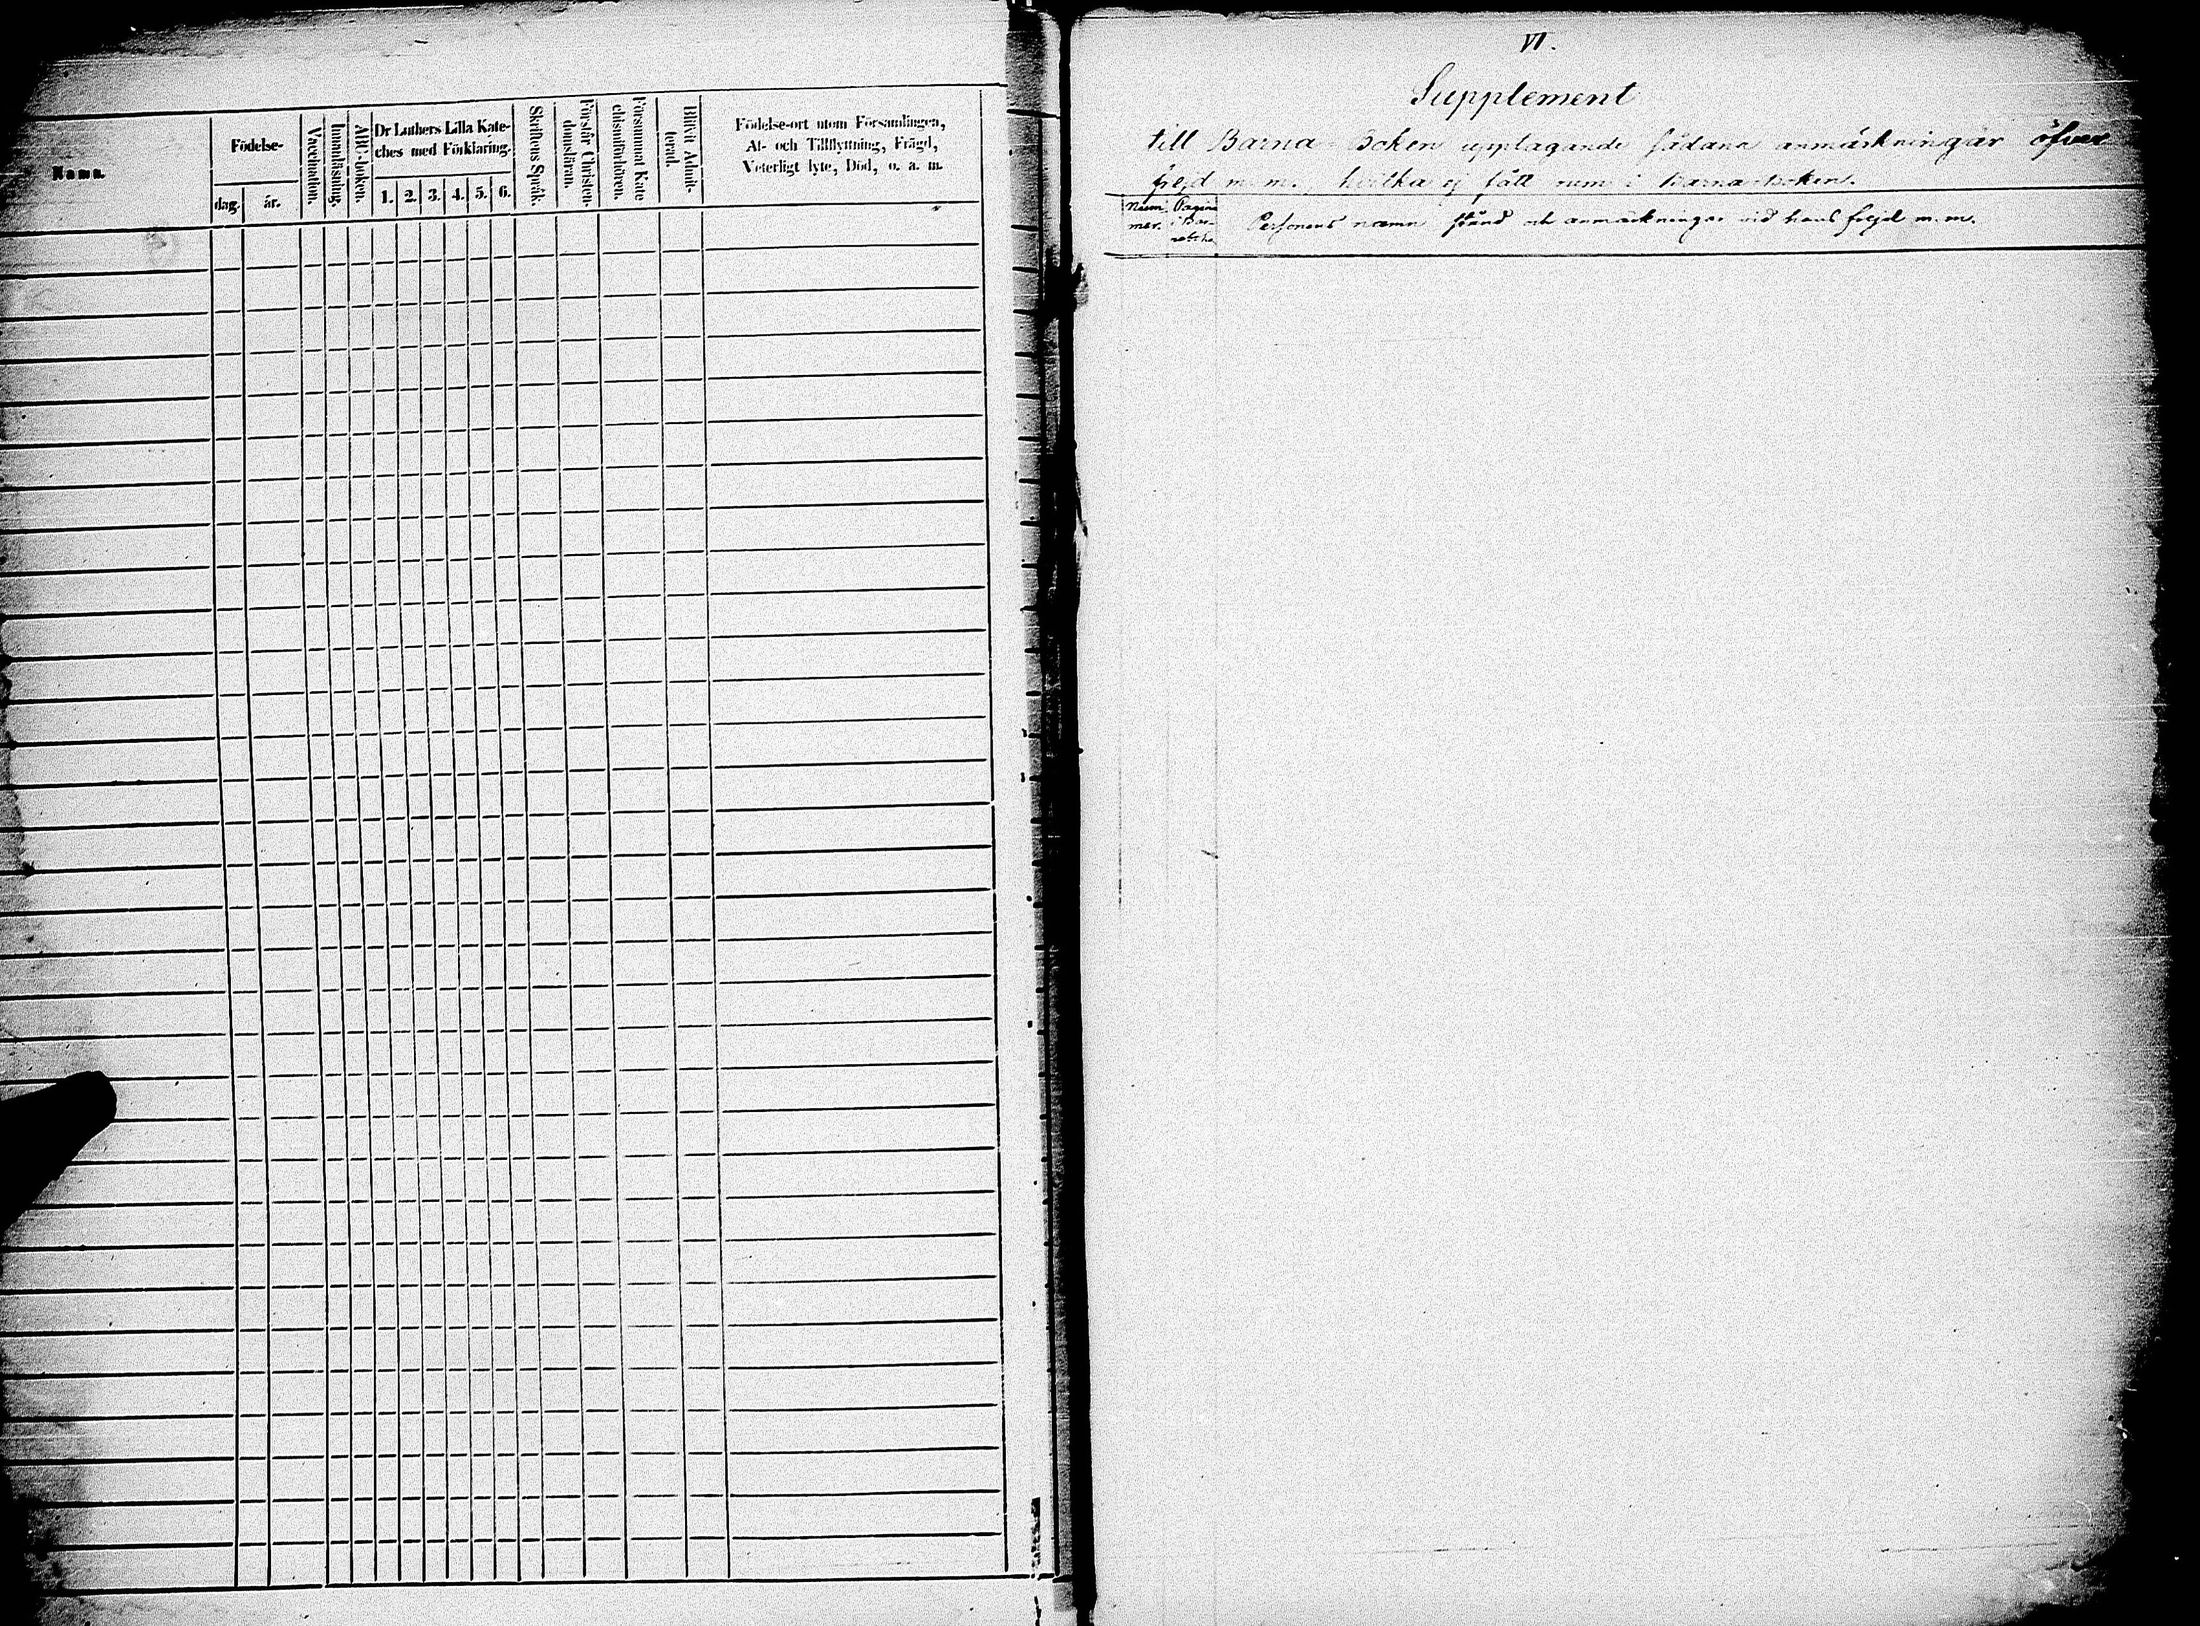 Namn.
Födelse-
dag.
år.
Vaccination.
Innanläsning.
ABC-boken.
Dr Luthers Lilla Kate-
ches med Förklaring.
1. 2. 3. 4. 5. 6.
Skriftens Språk.
Förstår Christen-
domsläran.
Försummat Kate
chismiförhören.
Blifvit Admit-
terad.
Födelse-ort utom Församlingen,
Af- och Tillflyttning, Frägd,
Veterligt lyte, Död, o. a. m.
VI.
Supplement
till Barna-Boken upptagande sådana anmärkningar öfver
frejd m. m. hvilka ej fått rum i Barnaboken.
Num
mer.
Pagina
i Bar-
Personens namn stånd och anmärkningar vid hans frejd m. m.